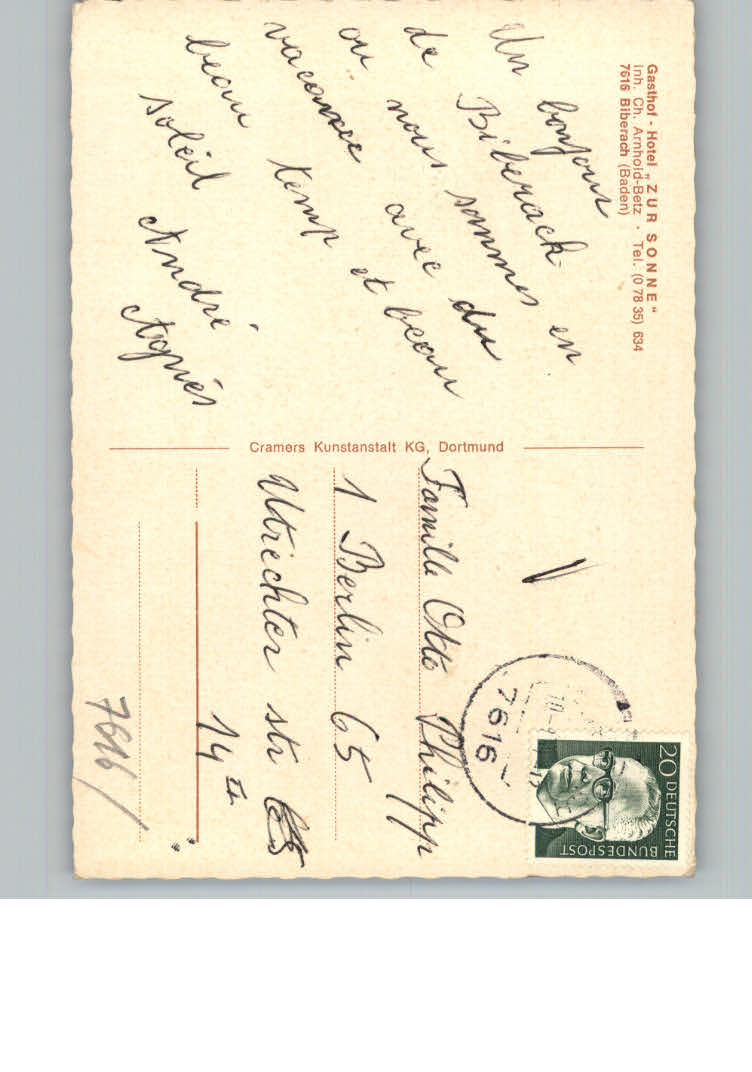 Gasthof - Hotel „ZUR SONNE“
Inh. Ch. Arnhold-Betz · Tel. (0 78 35) 634
7616 Biberach (Baden)
Un bonjour
de Biberach
ou nous sommes en
vacance avec du
beau temp et beau
soleil
André
Agnès
Cramers Kunstanstalt KG, Dortmund
20 DEUTSCHE
BUNDESPOST
7616
Famille Otto Philipp
1 Berlin 65
Utrechter str
14 II
7616/